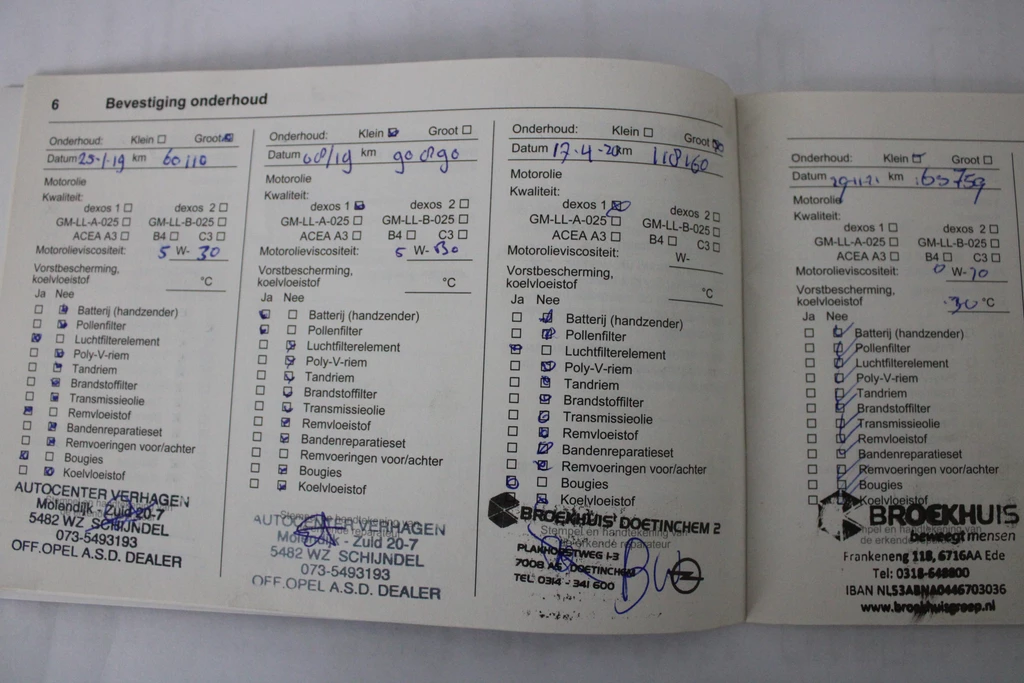 6 Bevestiging onderhoud
Onderhoud: Klein Groot
Datum 25-1-19 km 60110
Motorolie
Kwaliteit:
dexos 1 dexos 2
GM-LL-A-025 GM-LL-B-025
ACEA A3 B4 C3
Motorolieviscositeit: 5 W- 30
Vorstbescherming,
koelvloeistof °C
Ja Nee
Batterij (handzender)
Pollenfilter
Luchtfilterelement
Poly-V-riem
Tandriem
Brandstoffilter
Transmissieolie
Remvloeistof
Bandenreparatieset
Remvoeringen voor/achter
Bougies
Koelvloeistof
AUTOCENTER VERHAGEN
Molendijk - Zuid 20-7
5482 WZ SCHIJNDEL
073-5493193
OFF.OPEL A.S.D. DEALER
Onderhoud: Klein Groot
Datum km
Motorolie
Kwaliteit:
dexos 1 dexos 2
GM-LL-A-025 GM-LL-B-025
ACEA A3 B4 C3
Motorolieviscositeit: 5 W- 30
Vorstbescherming,
koelvloeistof °C
Ja Nee
Batterij (handzender)
Pollenfilter
Luchtfilterelement
Poly-V-riem
Tandriem
Brandstoffilter
Transmissieolie
Remvloeistof
Bandenreparatieset
Remvoeringen voor/achter
Bougies
Koelvloeistof
AUTOCENTER VERHAGEN
Molendijk - Zuid 20-7
5482 WZ SCHIJNDEL
073-5493193
OFF.OPEL A.S.D. DEALER
Onderhoud: Klein Groot
Datum 17-4-20 km 118160
Motorolie
Kwaliteit:
dexos 1 dexos 2
GM-LL-A-025 GM-LL-B-025
ACEA A3 B4 C3
Motorolieviscositeit: W-
Vorstbescherming,
koelvloeistof °C
Ja Nee
Batterij (handzender)
Pollenfilter
Luchtfilterelement
Poly-V-riem
Tandriem
Brandstoffilter
Transmissieolie
Remvloeistof
Bandenreparatieset
Remvoeringen voor/achter
Bougies
Koelvloeistof
BROEKHUIS DOETINCHEM 2
Stempel en handtekening van
de erkende reparateur
PLANHORSTWEG 1-3
7008 AE DOETINCHEM
TEL. 0314 - 341 600
Onderhoud: Klein Groot
Datum km
Motorolie
Kwaliteit:
dexos 1 dexos 2
GM-LL-A-025 GM-LL-B-025
ACEA A3 B4 C3
Motorolieviscositeit: 0 W-20
Vorstbescherming,
koelvloeistof -30 °C
Ja Nee
Batterij (handzender)
Pollenfilter
Luchtfilterelement
Poly-V-riem
Tandriem
Brandstoffilter
Transmissieolie
Remvloeistof
Bandenreparatieset
Remvoeringen voor/achter
Bougies
Koelvloeistof
BROEKHUIS
beweegt mensen
Frankeneng 118, 6716AA Ede
Tel: 0318-648800
IBAN NL53ABNA0446703036
www.broekhuisgroep.nl